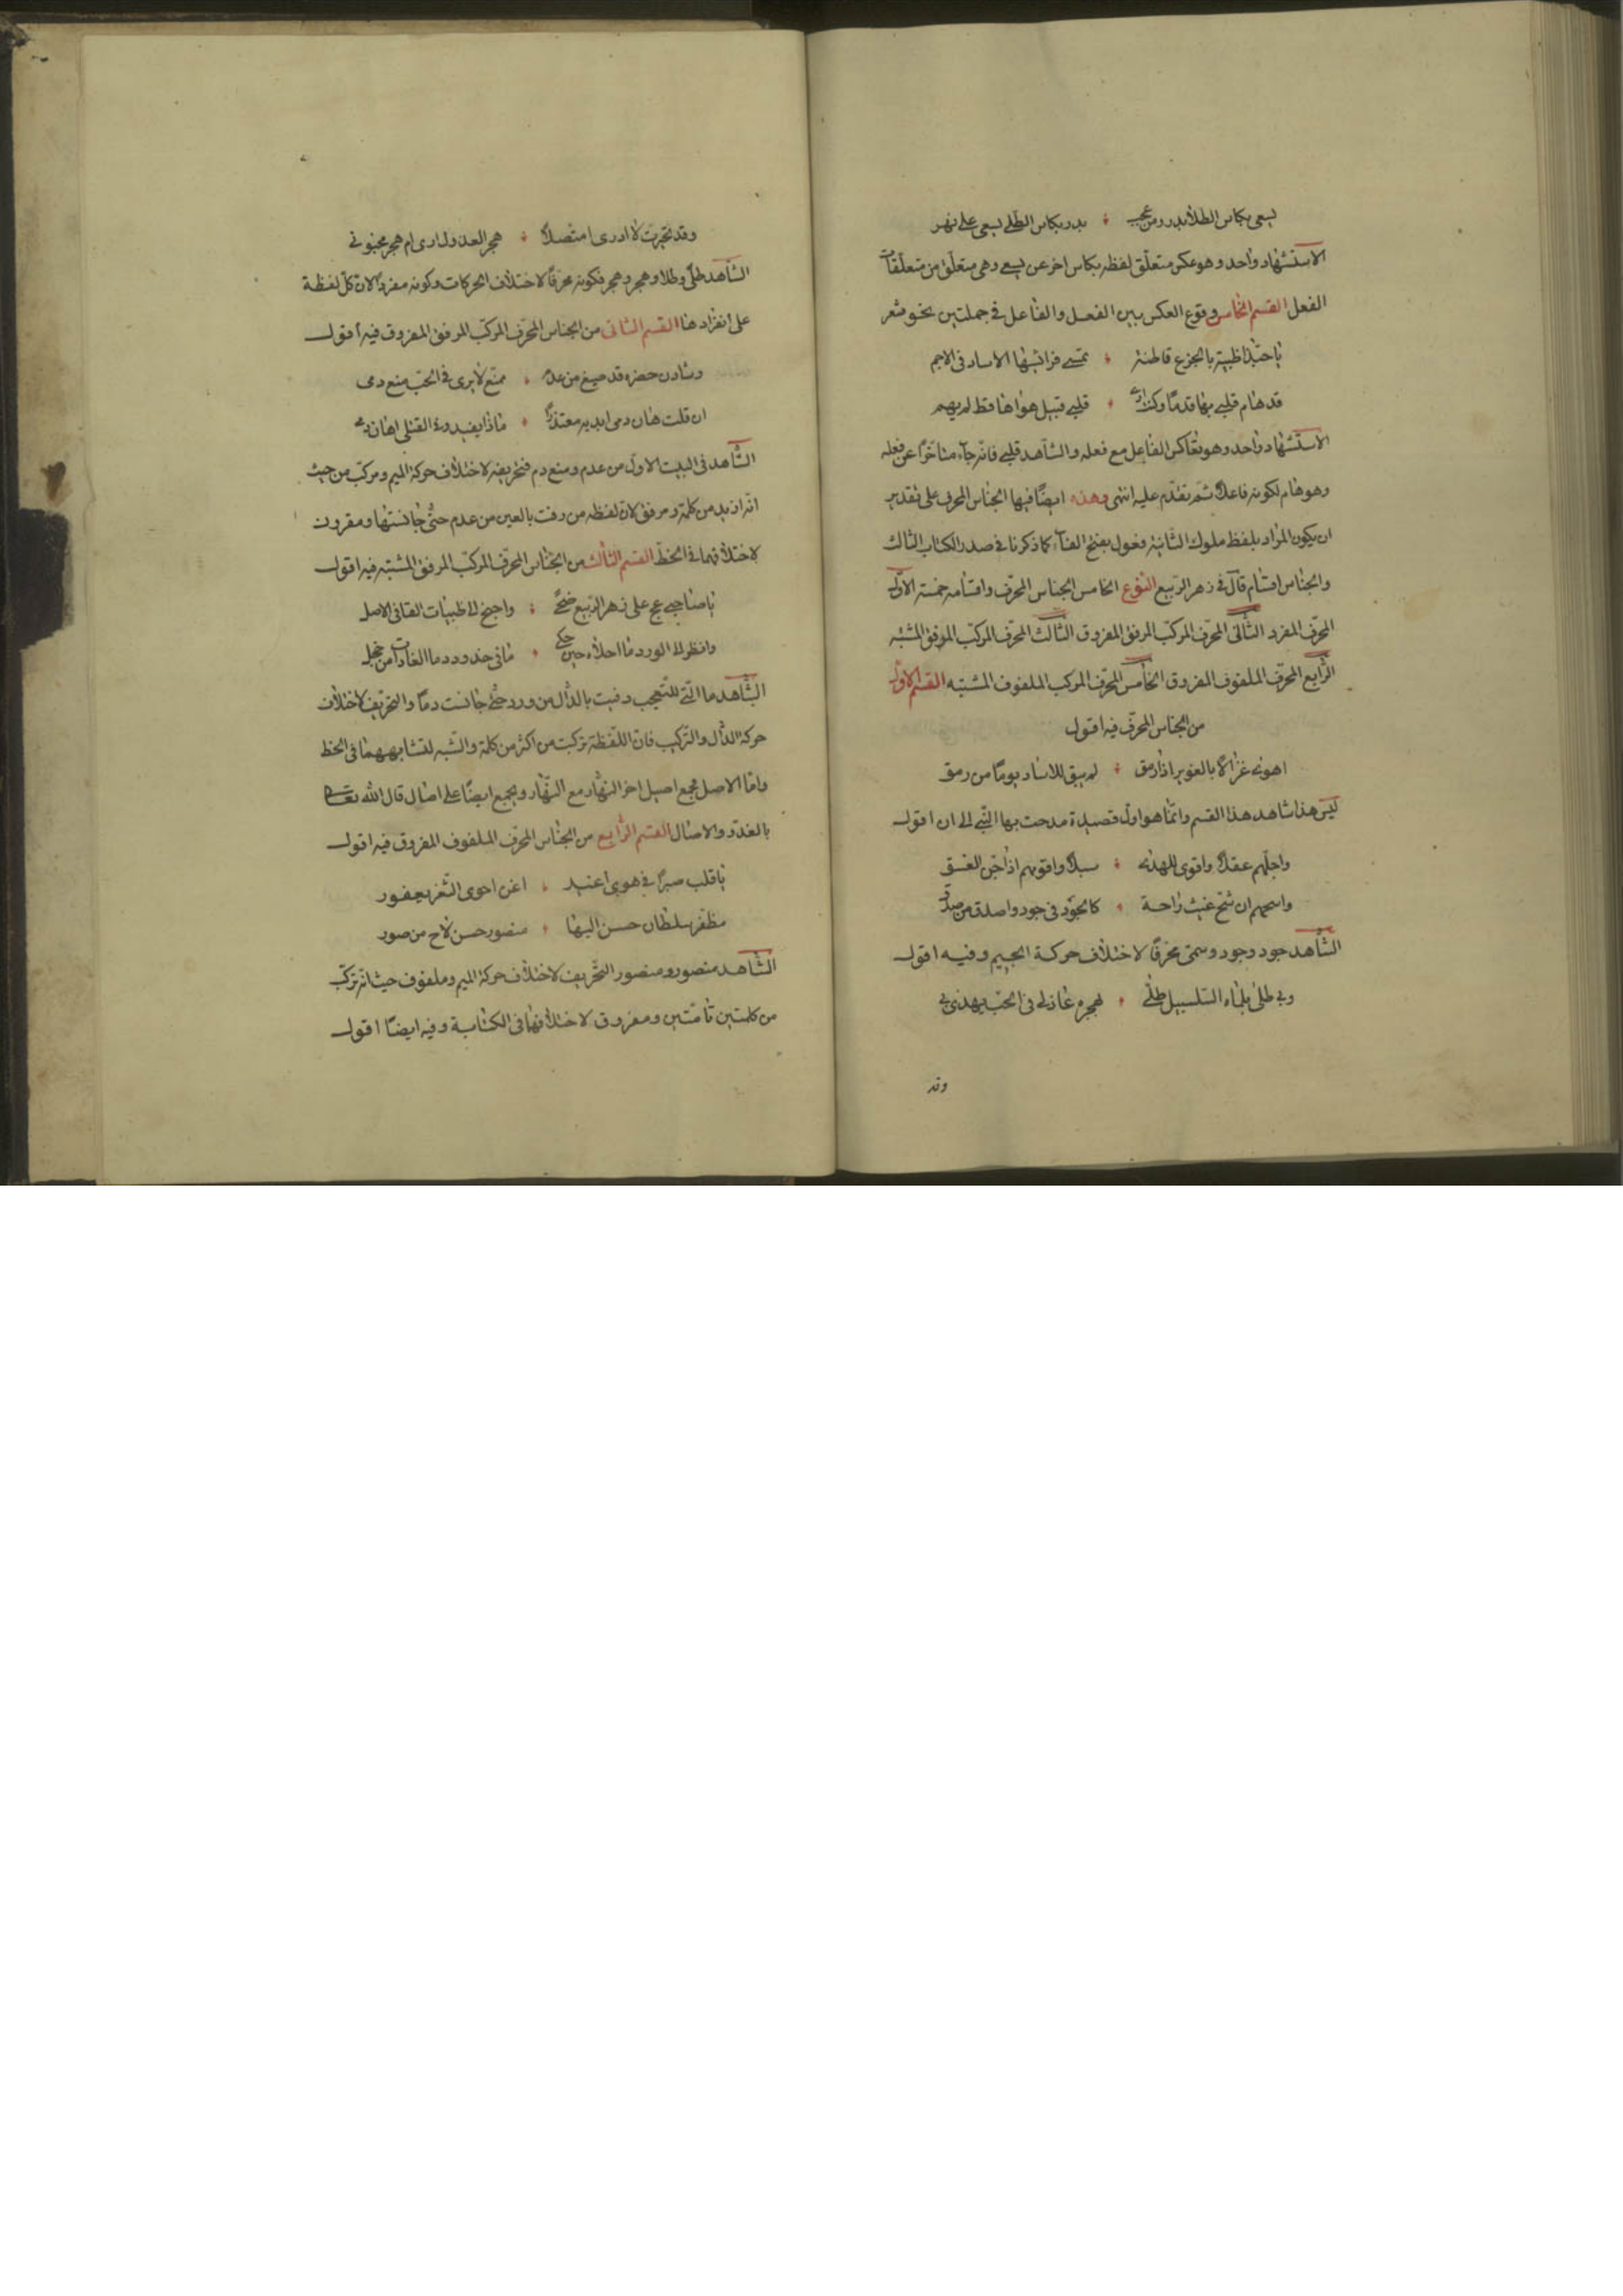 يسعى بكاس الطلا بدر ومن عجب ؞ بدر بكاس الطلى يسعى على نهر
الاستشهاد واحد وهو عكس متعلق لفظه بكاس اخر عن يسعى وهى متعلق من متعلقات
الفعل القسم الخامس وقوع العكس بين الفعل والفاعل فى جملتين نحو شعر
يا حبذا ظبية بالجزع قاطنة ؞ تمسى فرائسها الاساد فى الاجم
قد هام قلبى بها قدما وكنت ارى ؞ قلبى قبيل هواها قط لم يهم
الاستشهاد واحد وهو تعاكس الفاعل مع فعله والشاهد قلبى فانه جاء متأخرا عن فعله
وهو هام لكونه فاعلا ثم تقدم عليه انتهى وهذه ايضا فيها الجناس المحرف على تقدير
ان يكون المراد بلفظ ملوك الثانية فعول بفتح الفاء كما ذكرنا فى صدر الكتاب الثالث
والجناس اقسام قال فى زهر الربيع النوع الخامس الجناس المحرف واقسامه خمسة الاول
المحرف المفرد الثانى المحرف المركب المرفق المفروق الثالث المحرف المركب المرفق المشتبه
الرابع المحرف الملفوف المفروق الخامس المحرف المركب الملفوف المشتبه القسم الاول
من الجناس المحرف فيه اقول
اهوى غزالا بالغوير اذا رمق ؞ لم يبق للاساد يوما من رمق
ليس هذا شاهد هذا القسم وانما هو اول قصيدة مدحت بها النبى الى ان اقول
واجلهم عقلا واقوى للهدى ؞ سبلا واقومهم اذا جن الغسق
واسحهم ان شح غيث راحة ؞ كالجود فى جود واصدق من صدق
الشاهد جود وجود وسمى محرفا لاختلاف حركة الجيم وفيه اقول
وبى طلى بلماء السلسبيل طلى ؞ لهجره عاذلى فى الحب يهذى بى
وقد
وقد تحيرت لا ادرى امتصلا ؞ هجر العذول ارى ام هجر محبوبى
الشاهد طلى وطلا وهجر وهجر فكونه محرفا لاختلاف الحركات وكونه مفردا لان كل لفظة
على انفرادها القسم الثانى من الجناس المحرف المركب المرفق المفروق فيه اقول
وشادن خصره قد صيغ من عدم ؞ ممنع لا يرى فى الحب منع دمى
ان قلت هان دمى ابديه معتذرا ؞ ماذا يفيد ودى القتلى اهان دمى
الشاهد فى البيت الاول من عدم ومنع دم فتحريفه لاختلاف حركة الميم ومركب من حيث
انه ازيد من كلمة ومرفق لان لفظه من رفت بالعين من عدم حتى جانستها ومقرون
لاختلافهما فى الخط القسم الثالث من الجناس المحرف المركب المرفق المشتبه فيه اقول
يا صاحبى عج على زهر الربيع ضحى ؞ واجنح الى طيبات القا فى الاصل
وانظر الى الورد ما احلاه حين حكى ؞ ما فى خدود دما الغادات من خجل
الشاهد ما التى للتعجب رفيت بالدال من ورد حتى جانست دما والتحريف لاختلاف
حركة الدال والتركيب فان اللفظة تركبت من اكثر من كلمة والشبه لتشابههما فى الخط
واما الاصل مجمع اصيل اخر النهار مع النهار ويجمع ايضا على اصال قال الله تعالى
بالغدو والاصال القسم الرابع من الجناس المحرف الملفوف المفروق فيه اقول
يا قلب صبرا فى هوى اغيد ؞ اغن احوى الثغر يعفور
مظفر سلطان حسن البها ؞ منصور حسن لاح من صور
الشاهد منصور ومنصور التحريف لاختلاف حركة الميم وملفوف حيث انه تركب
من كلمتين تامتين ومفروق لاختلافهما فى الكتابة وفيه ايضا اقول